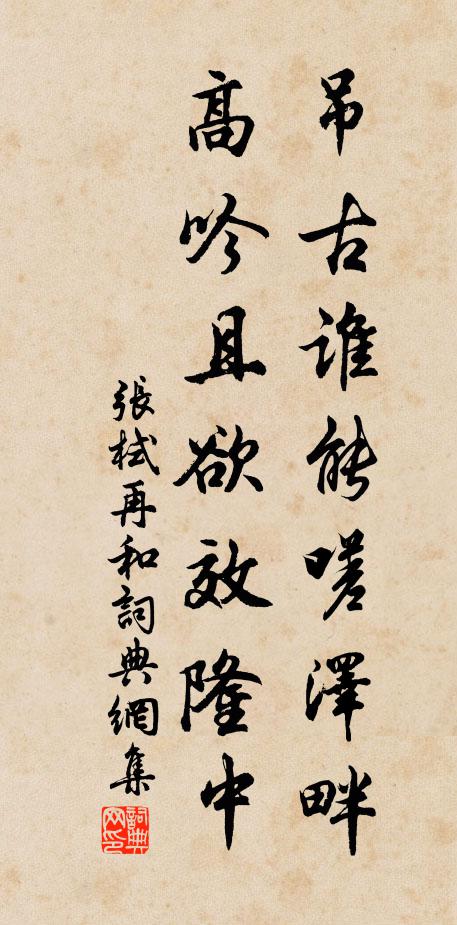 吊古誰能嗟澤畔
高吟且欲效隆中
張栻再和詞典網集
詞典网印